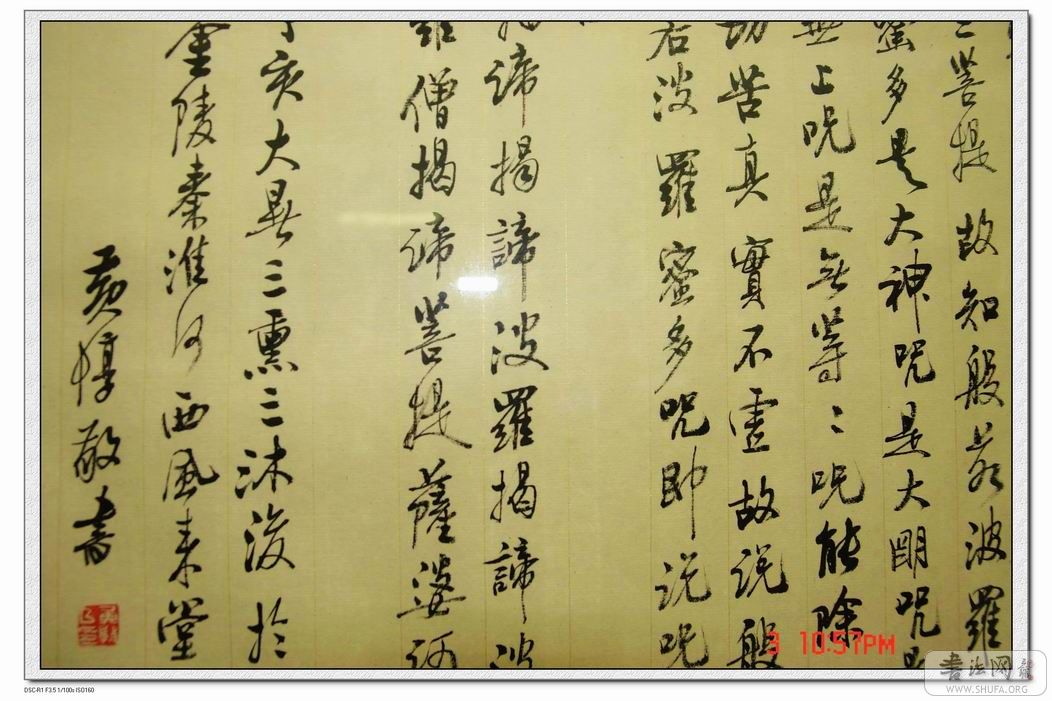 三菩提故知般若波羅
蜜多是大神咒是大明咒是
無上咒是無等〻咒能除
切苦真實不虛故说般
若波羅蜜多咒即说咒
揭諦揭諦波羅揭諦波
羅僧揭諦菩提薩婆訶
丁亥大暑三熏三沐後於
金陵秦淮河西風来堂
黄惇敬書
3 10:57PM
書法网
WWW.SHUFA.ORG
DSC-R1 F3.5 1/100s ISO160